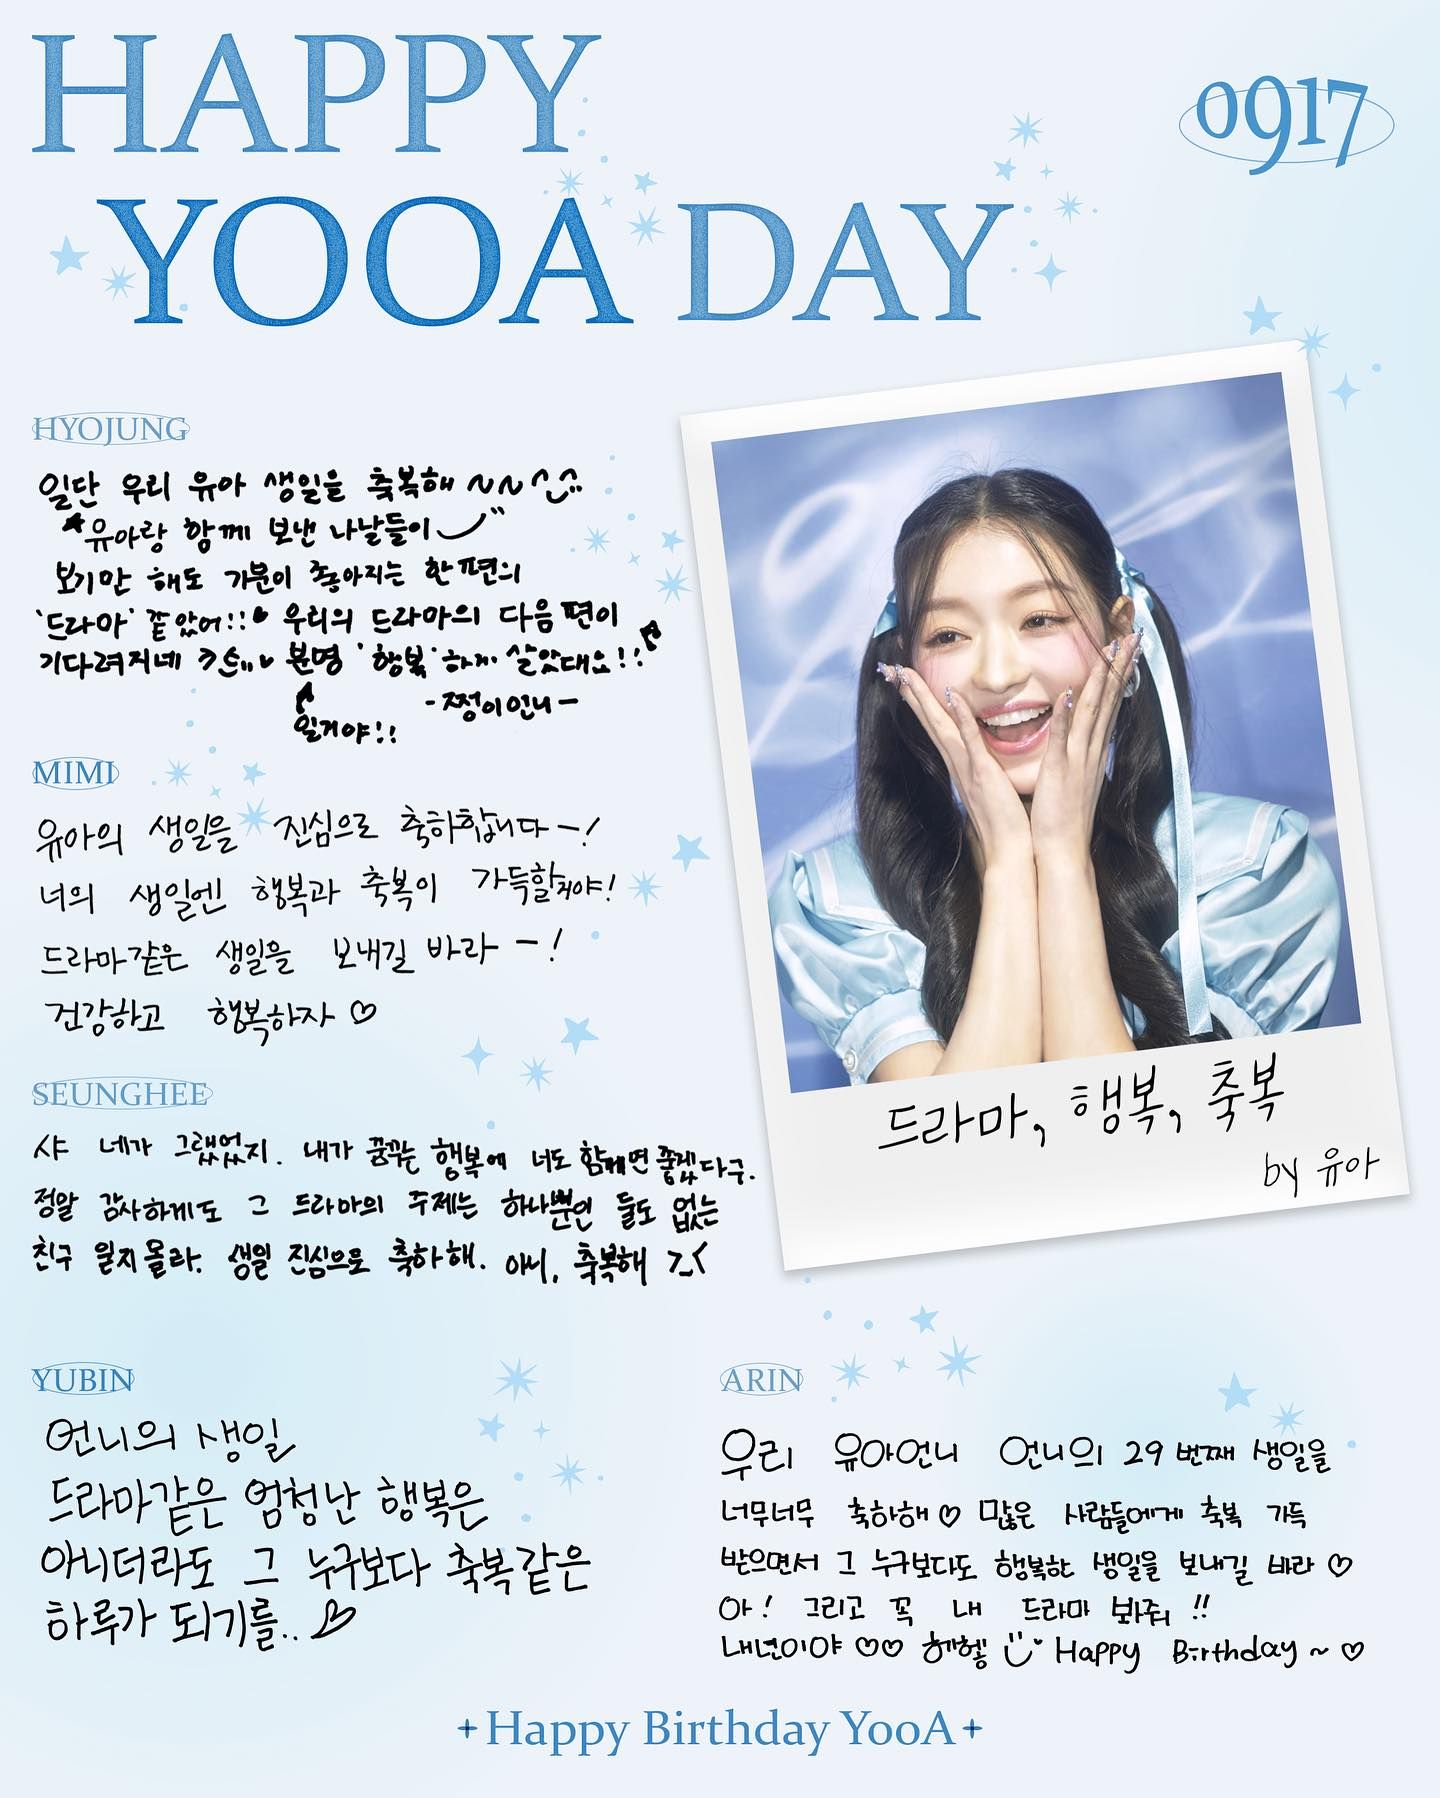 HAPPY
YOOA DAY
0917
HYOJUNG
일단 우리 유아 생일을 축복해 ~~ ^^
유아랑 함께 보낸 나날들이
보기만 해도 기분이 좋아지는 한 편의
'드라마' 같았어!! 우리의 드라마의 다음 편이
기다려지네 분명 '행복'하게 살았대요!!
일거야!!
- 쩡이언니 -
MIMI
유아의 생일을 진심으로 축하합니다 - !
너의 생일엔 행복과 축복이 가득할거야!
드라마같은 생일을 보내길 바라 - !
건강하고 행복하자 ♡
SEUNGHEE
샤 네가 그랬었지. 내가 꿈꾸는 행복에 너도 함께면 좋겠다구.
정말 감사하게도 그 드라마의 주제는 하나뿐인 둘도 없는
친구 일지 몰라. 생일 진심으로 축하해. 아니, 축복해 >_<
드라마, 행복, 축복
by 유아
YUBIN
언니의 생일
드라마같은 엄청난 행복은
아니더라도 그 누구보다 축복같은
하루가 되기를.. ♡
ARIN
우리 유아언니 언니의 29번째 생일을
너무너무 축하해 ♡ 많은 사람들에게 축복 가득
받으면서 그 누구보다도 행복한 생일을 보내길 바라 ♡
아! 그리고 꼭 내 드라마 봐줘 !!
내년이야 ♡♡ 헤헿 Happy Birthday ~ ♡
Happy Birthday YooA